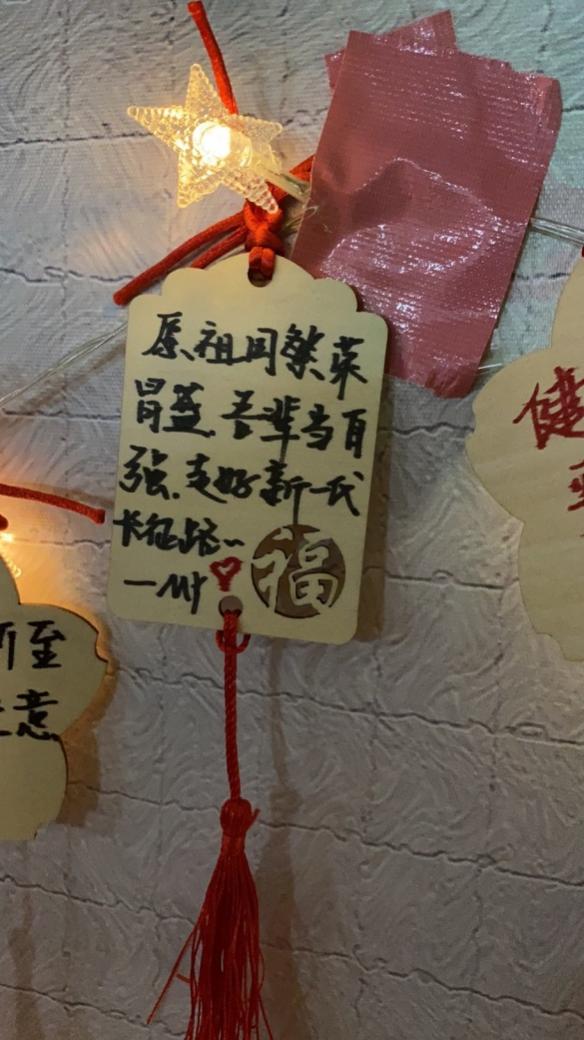 愿祖国繁荣
昌盛.吾辈当自
强.走好新一代
长征路~
—MY♡
福
至
意
健